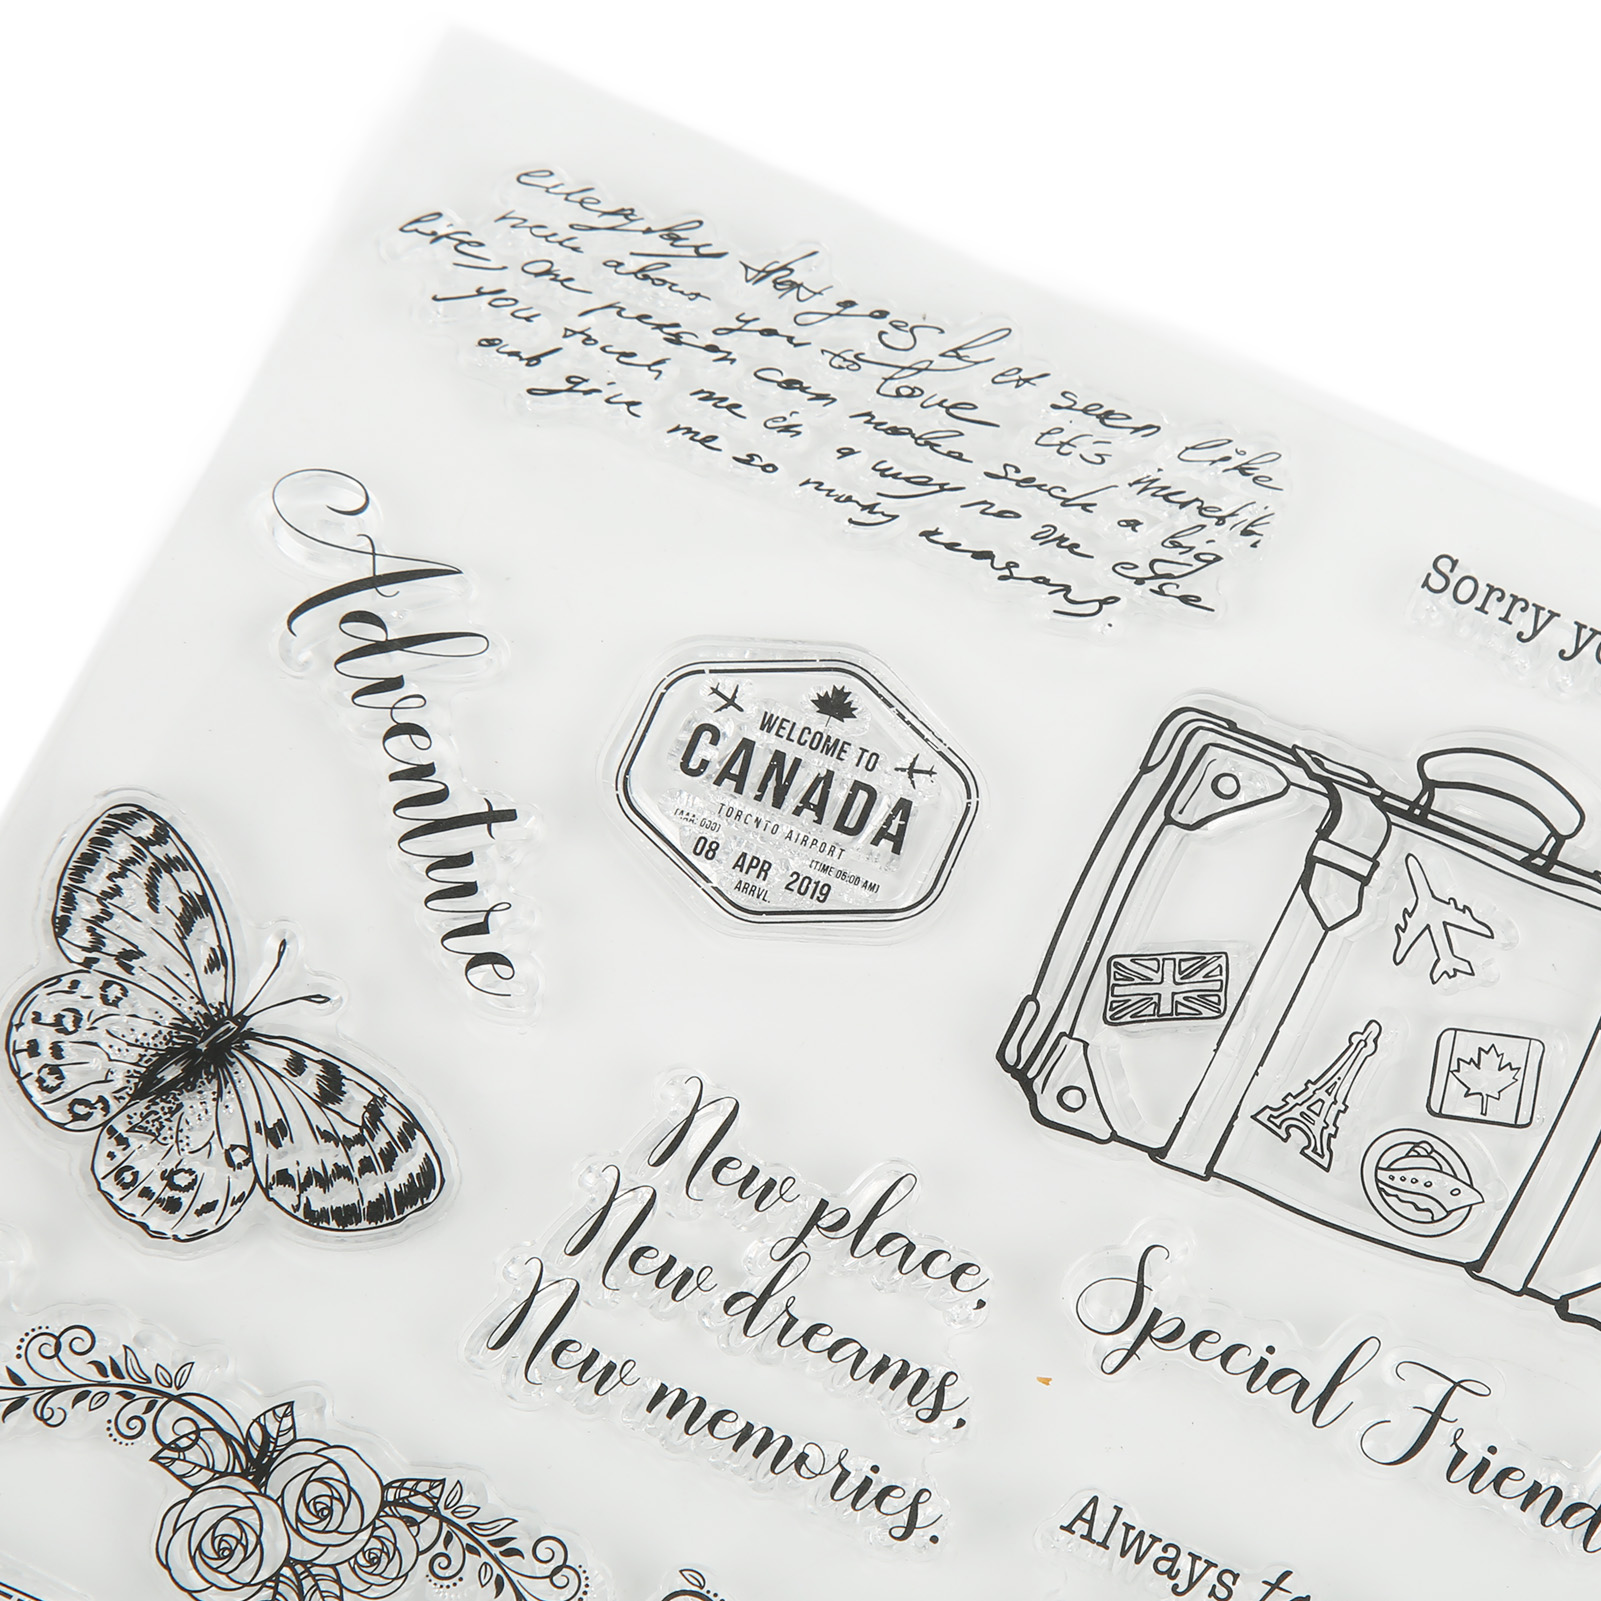 everyday that goes by it seem like
new about you to love it's
life, one person can make such a big
you touch me in a way no one else
and give me so many reasons.
Sorry
Adventure
WELCOME TO
CANADA
TORONTO AIRPORT
08 APR 2019
[TIME 06:00 AM]
ARRVL.
New place,
New dreams,
New memories.
Special Friend
Always